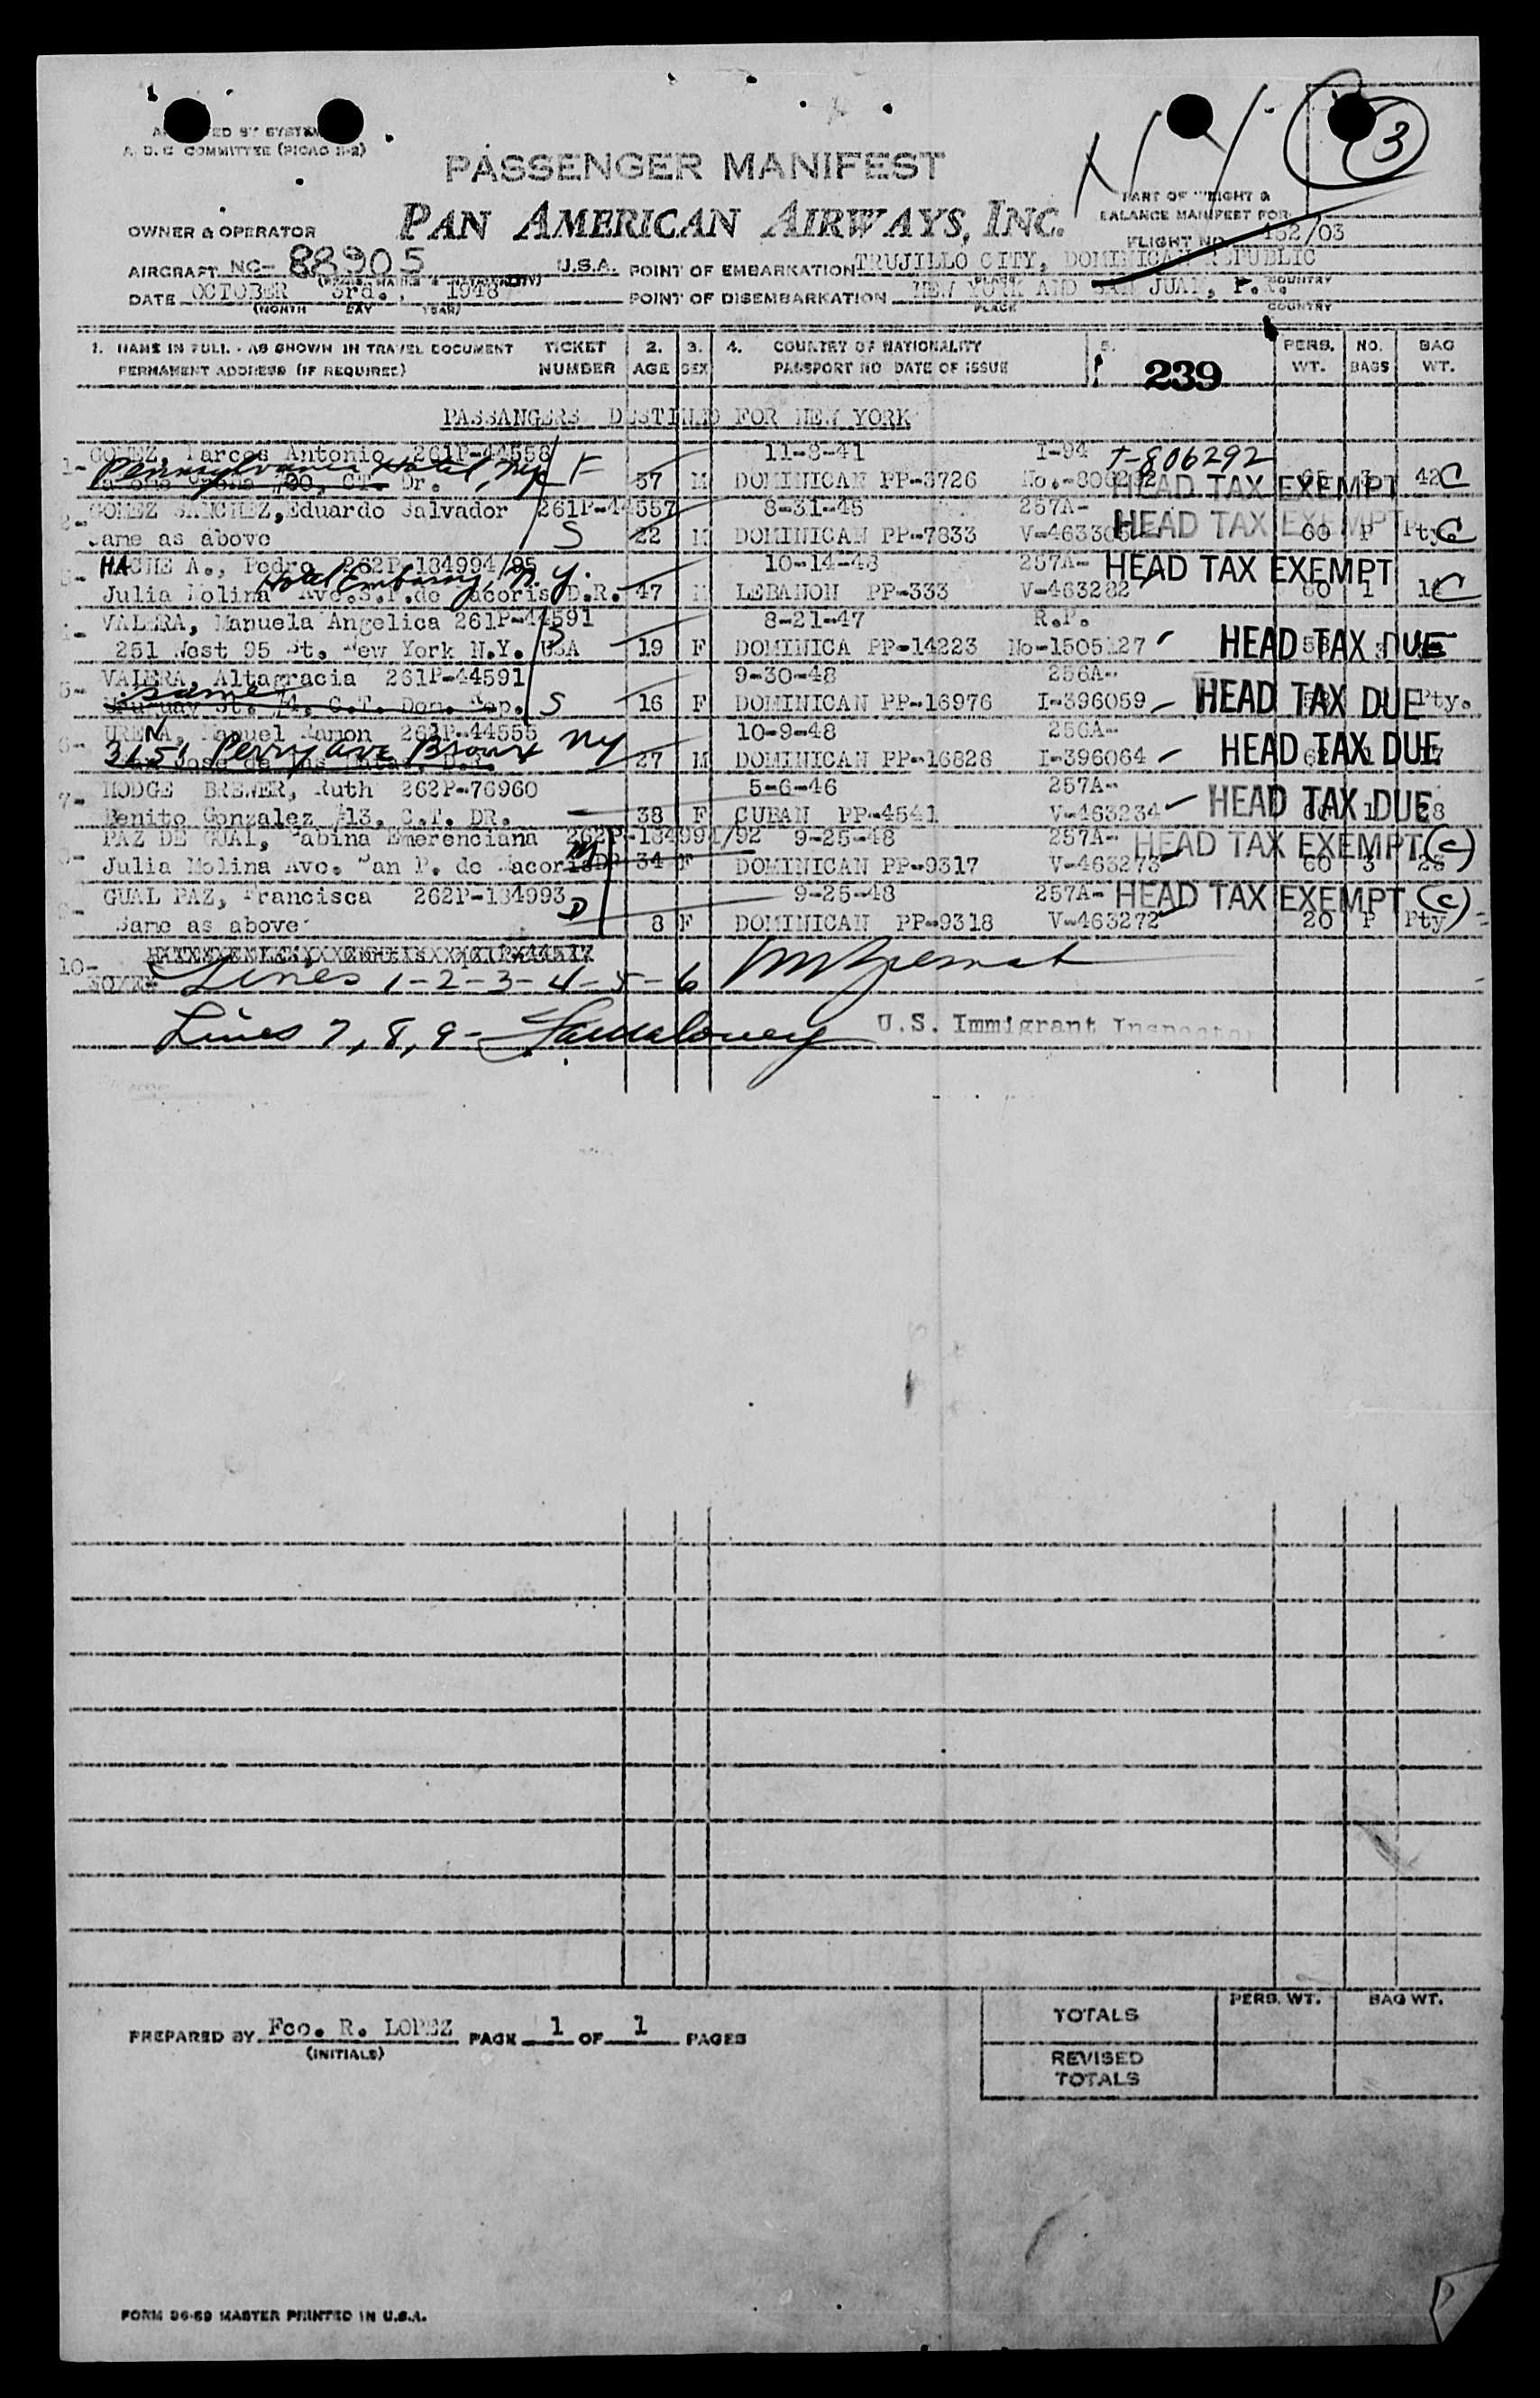 COMMITTEE (PICAO
PASSENGER MANIFEST
N Y
3
PAN AMERICAN AIRWAYS, INC.
PART OF WEIGHT &
BALANCE MANIFEST FOR
OWNER & OPERATOR
FLIGHT NO. 432/03
AIRCRAFT NC- 88905 U.S.A. POINT OF EMBARKATION TRUJILLO CITY, DOMINICAN REPUBLIC
DATE OCTOBER 3rd., 1948 POINT OF DISEMBARKATION NEW YORK AND SAN JUAN, P.R.
(MONTH DAY YEAR) PLACE COUNTRY
1. NAME IN FULL - AS SHOWN IN TRAVEL DOCUMENT TICKET 2. 3. 4. COUNTRY OF NATIONALITY 5. PERS. NO. BAG
PERMANENT ADDRESS (IF REQUIRED) NUMBER AGE SEX PASSPORT NO DATE OF ISSUE 239 WT. BAGS WT.
PASSANGERS DESTINED FOR NEW YORK
1- GOMEZ, Marcos Antonio 261P-44558 11-8-41 I-94 I-806292
Pennsylvania Hotel, NY F
57 M DOMINICAN PP-3726 No.-806292 HEAD TAX EXEMPT 65 3 42 C
2- GOMEZ SANCHEZ, Eduardo Salvador 261P-44557 8-31-45 257A-
Same as above S 22 M DOMINICAN PP-7833 V-463305 HEAD TAX EXEMPT 60 P Pty C
3- HACHE A., Pedro 262P-134994/95 10-14-48 257A- HEAD TAX EXEMPT
Hotel Embassy, N.Y.
Julia Molina Ave. S.P. de Macoris D.R. 47 M LEBANON PP-333 V-463282 60 1 C
4- VALERA, Manuela Angelica 261P-44591 8-21-47 R.P.
251 West 95 St. New York N.Y. USA S 19 F DOMINICA PP-14223 No-1505127 HEAD TAX DUE
5- VALERA, Altagracia 261P-44591 9-30-48 256A-
same
Uruguay St. 74, C.T. Dom. Rep. S 16 F DOMINICAN PP-16976 I-396059 HEAD TAX DUE Pty.
6- URENA, Manuel Ramon 261P-44555 10-9-48 256A-
3151 Perry Ave Bronx NY
San Jose de las Matas, D.R. 27 M DOMINICAN PP-16828 I-396064 HEAD TAX DUE
7- HODGE BREWER, Ruth 262P-76960 5-6-46 257A-
Benito Gonzalez 13, C.T. DR. 38 F CUBAN PP-4541 V-463234 HEAD TAX DUE
8- PAZ DE GUAL, Sabina Emerenciana 262P-134991/92 9-25-48 257A- HEAD TAX EXEMPT (C)
Julia Molina Ave. San P. de Macoris DR M 34 F DOMINICAN PP-9317 V-463273 60 3 28
9- GUAL PAZ, Francisca 262P-134993 9-25-48 257A- HEAD TAX EXEMPT (C)
Same as above D 8 F DOMINICAN PP-9318 V-463272 20 P Pty
10-
Lines 1-2-3-4-5-6
Lines 7, 8, 9- U.S. Immigrant Inspector
TOTALS PERS. WT. BAG WT.
PREPARED BY Fco. R. LOPEZ PAGE 1 OF 1 PAGES
(INITIALS)
REVISED
TOTALS
FORM 96-69 MASTER PRINTED IN U.S.A.